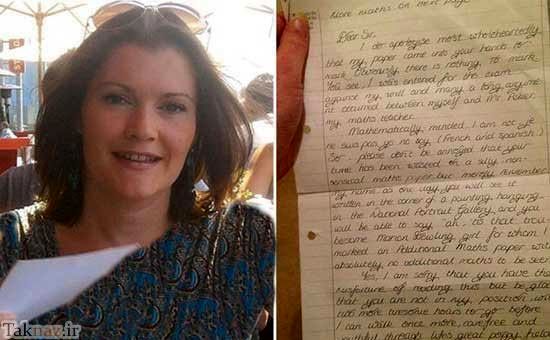 More maths on next page
Dear Sir,
I do apologise most wholeheartedly
that my paper came into your hands to
mark. Obviously, there is nothing to mark.
You see I was entered for the exam
against my will and many a long argument
occurred between myself and Mr
my maths teacher.
Mathematically minded I am not
ne suis pas, yo no soy (French and Spanish)
Sir please don't be annoyed that your
time has been wasted on a silly, non-
sensical maths paper but merely remember
my name as one day, you will see it
written in the corner of a painting hanging
in the National Portrait Gallery, and you
will be able to say 'ah, its that
become Marion girl for whom I
marked an Additional Maths paper with
absolutely, no additional maths to be seen
Yes, I am sorry that you have the
misfortune of reading this but be glad
that you are not in my position with
two more tiresome hours to go before
I can walk once more, carefree and
through life's great poppy field
Taknaz.ir